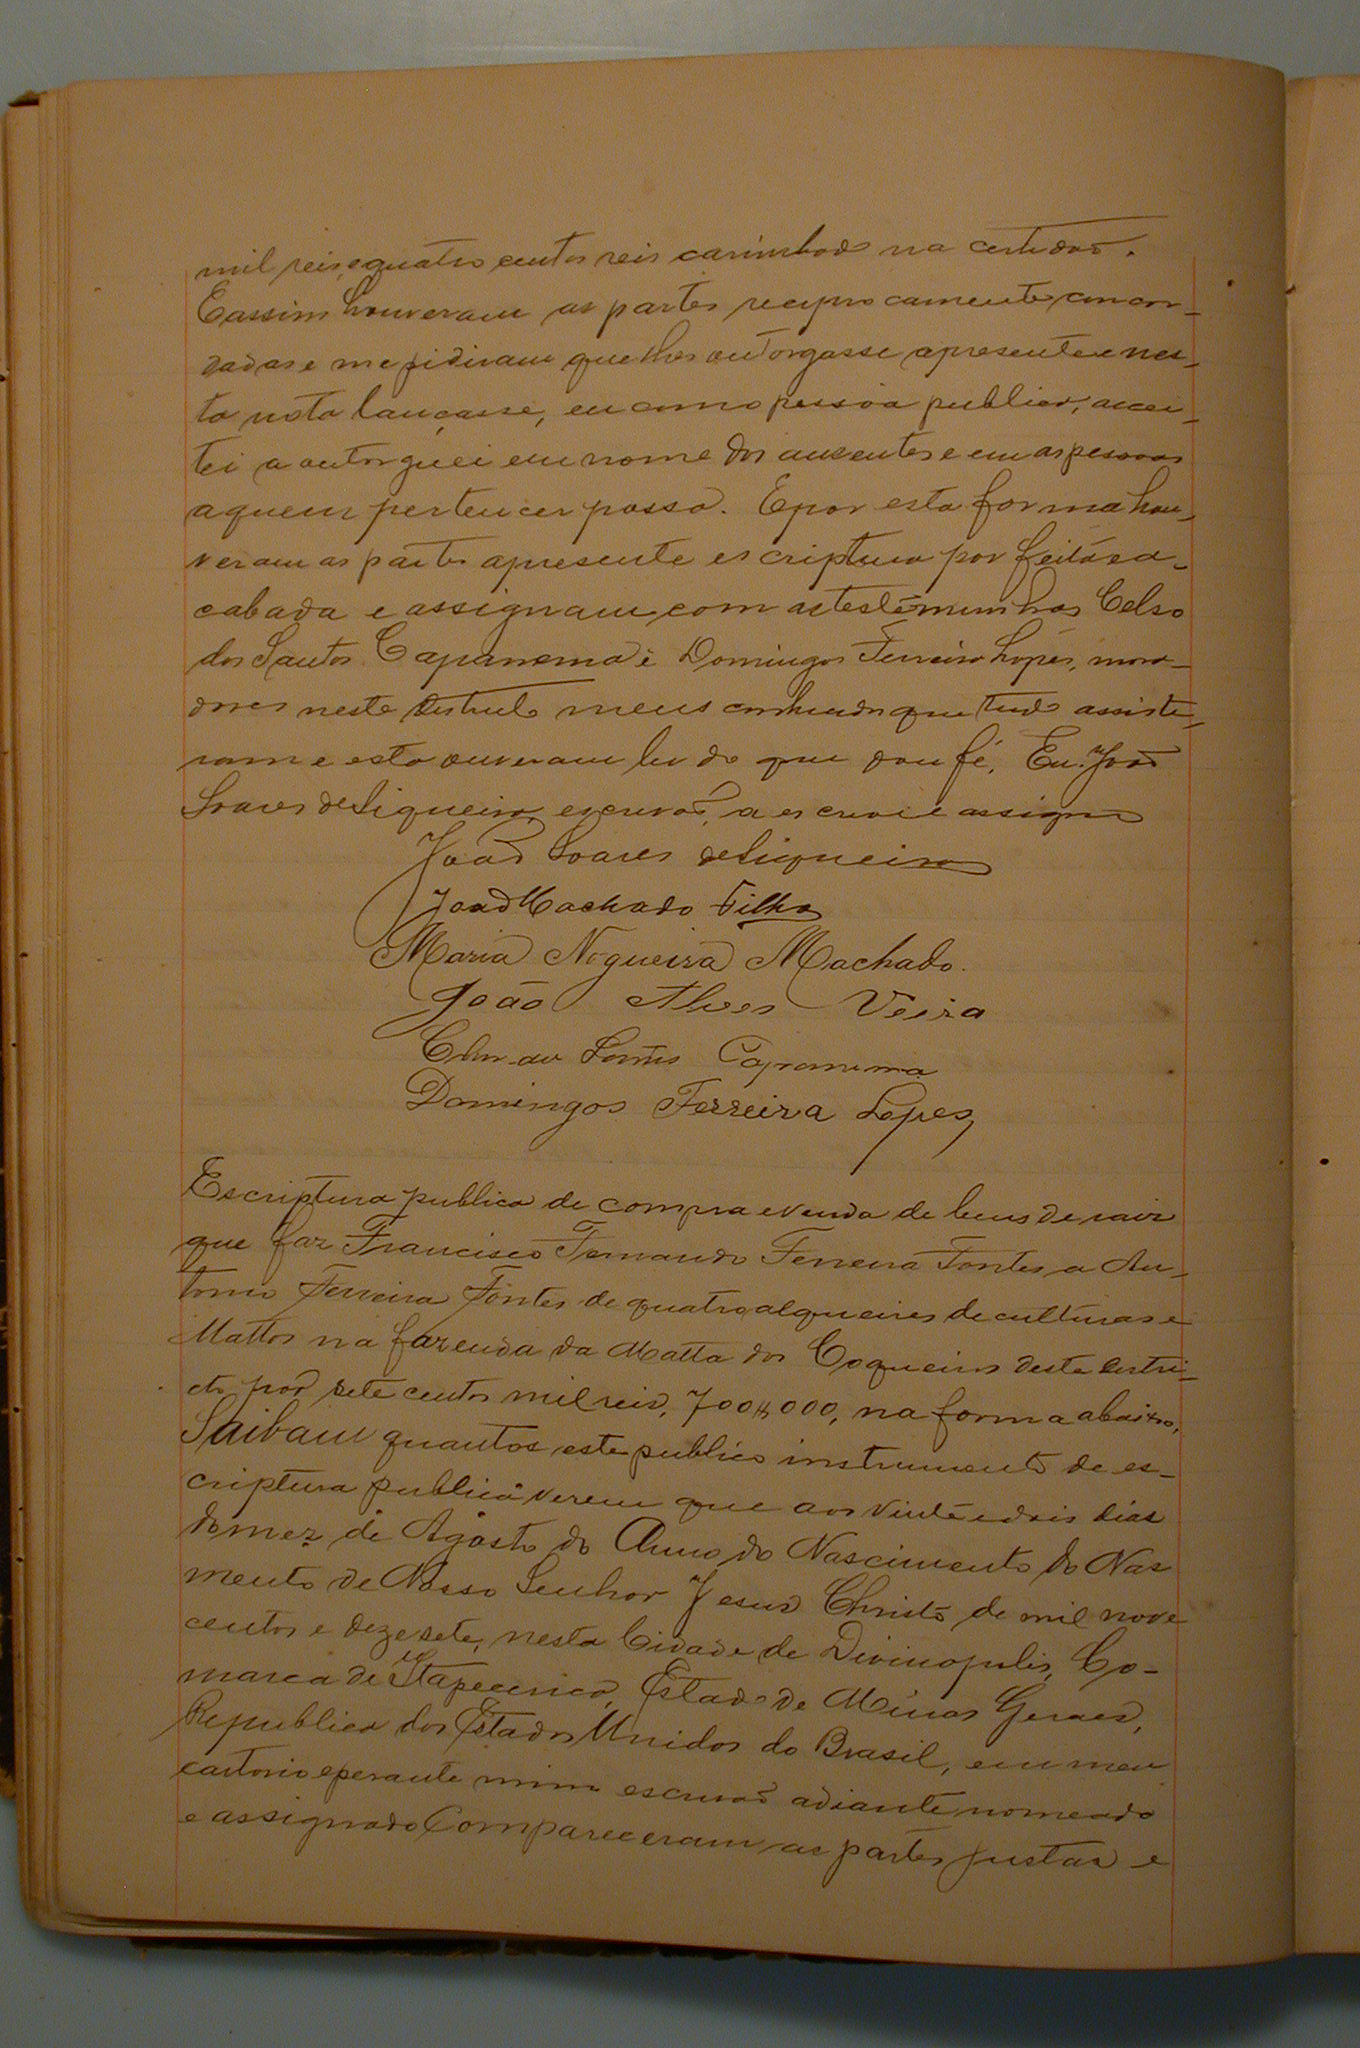 mil reis, e quatro centos reis carimbado na certidão.
E assim houveram as partes reciprocamente concor-
dadas e me pidiram que lhes outorgasse apresente e nes-
ta nota lançasse, eu como pessoa publica, accei-
tei a outorguei em nome dos auzentes e em as pessoas
aquem pertencer possa. E por esta forma hou-
veram as partes apresente escriptura por feita e a-
cabada e assignam com as testemunhas Celso
dos Santos Capanema e Domingos Ferreira Lopes, mora-
dores neste districto meus conhecidos que tudo assisti-
ram e esta ouveram ler do que dou fé. Eu João
Soares de Siqueira, escrivão, a escrevi e assigno
João Soares de Siqueira
João Machado Filho
Maria Nogueira Machado.
João Alves Veira
Celso dos Santos Capanema
Domingos Ferreira Lopes
Escriptura publica de compra e venda de bens de raiz
que faz Francisco Fernando Ferreira Fontes a An-
tonio Ferreira Fontes de quatro alqueires de culturas e
Mattos na fazenda da Matta dos Coqueiros deste distri-
cto por sete centos mil reis, 700$000, na forma abaixo.
Saibam quantos este publico instrumento de es-
criptura publica verem que aos vinte e dois dias
do mez de Agosto do Anno do Nascimento do Nas
mento de Nosso Senhor Jesus Christo de mil nove
centos e dezesete, nesta Cidade de Divinopolis, Co-
marca de Itapecerica, Estado de Minas Geraes,
Republica dos Estados Unidos do Brasil, em meu
cartorio e perante mim escrivão adiante nomeado
e assignado Compareceram as partes justas e